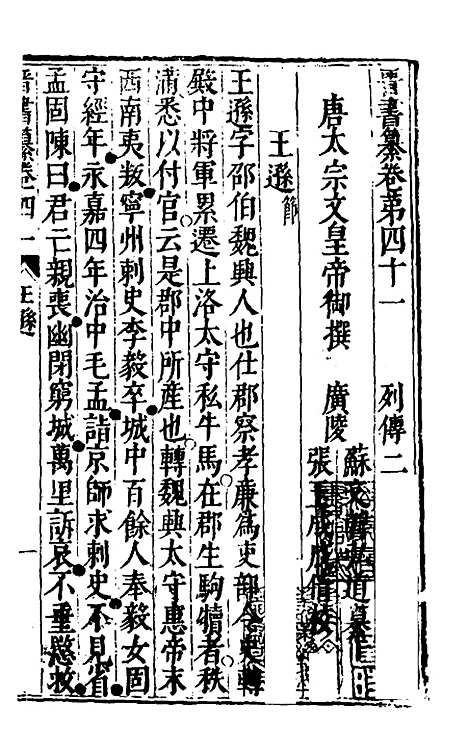 晉書纂卷第四十一　列傳二
唐太宗文皇帝御撰　廣陵
蘇文韓道纂
張成教
王遜節
王遜字邵伯魏興人也仕郡察孝廉爲吏部令史轉
殿中將軍累遷上洛太守私牛馬在郡生駒犢者秩
滿悉以付官云是郡中所産也轉魏興太守惠帝末
西南夷叛寧州刺史李毅卒城中百餘人奉毅女固
守經年永嘉四年治中毛孟詣京師求刺史不見省
孟固陳曰君亡親喪幽閉窮城萬里訴哀不垂愍救
晉書纂卷四一　王遜　一